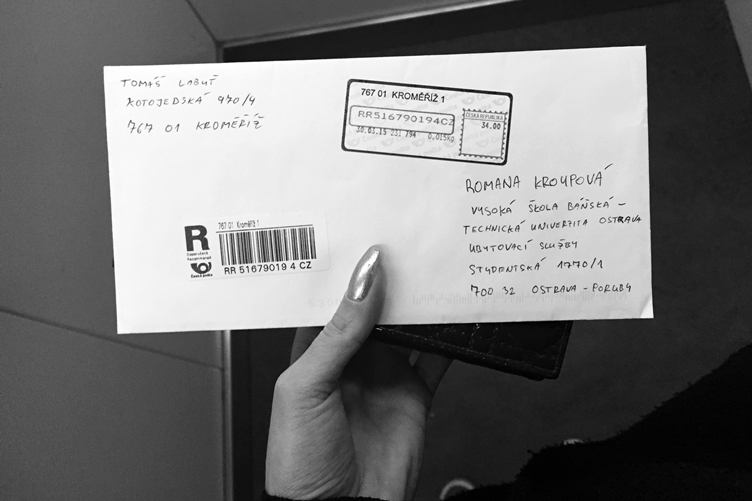 TOMÁŠ LABUŤ
KOTOJEDSKÁ 970/9
767 01 KROMĚŘÍŽ
767 01 KROMĚŘÍŽ 1
RR516790194CZ
30.03.15 231 794 0.015kg
ČESKÁ REPUBLIKA
34.00
ROMANA KROUPOVÁ
VYSOKÁ ŠKOLA BÁŇSKÁ -
TECHNICKÁ UNIVERZITA OSTRAVA
UBYTOVACÍ SLUŽBY
STUDENTSKÁ 1770/1
700 32 OSTRAVA - PORUBY
R
767 01 Kroměříž 1
Doporučeně
Recommandé
Česká pošta
RR 51679019 4 CZ